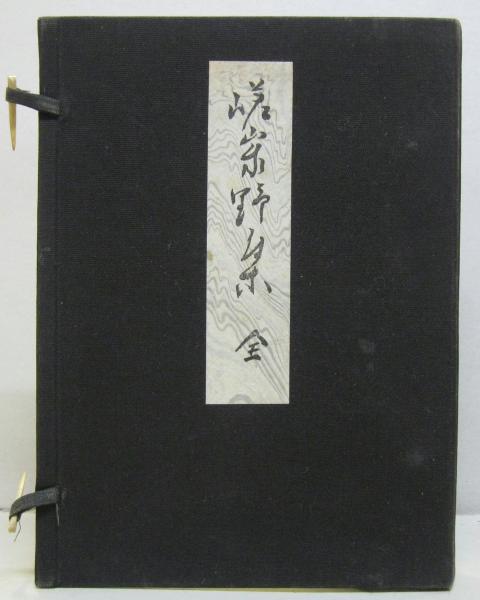 嵯峩野集 全